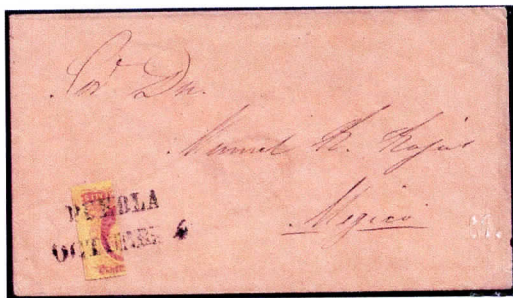 Sor Dn.
Manuel R. Rojas
Megico
PUEBLA
OCTUBRE 4